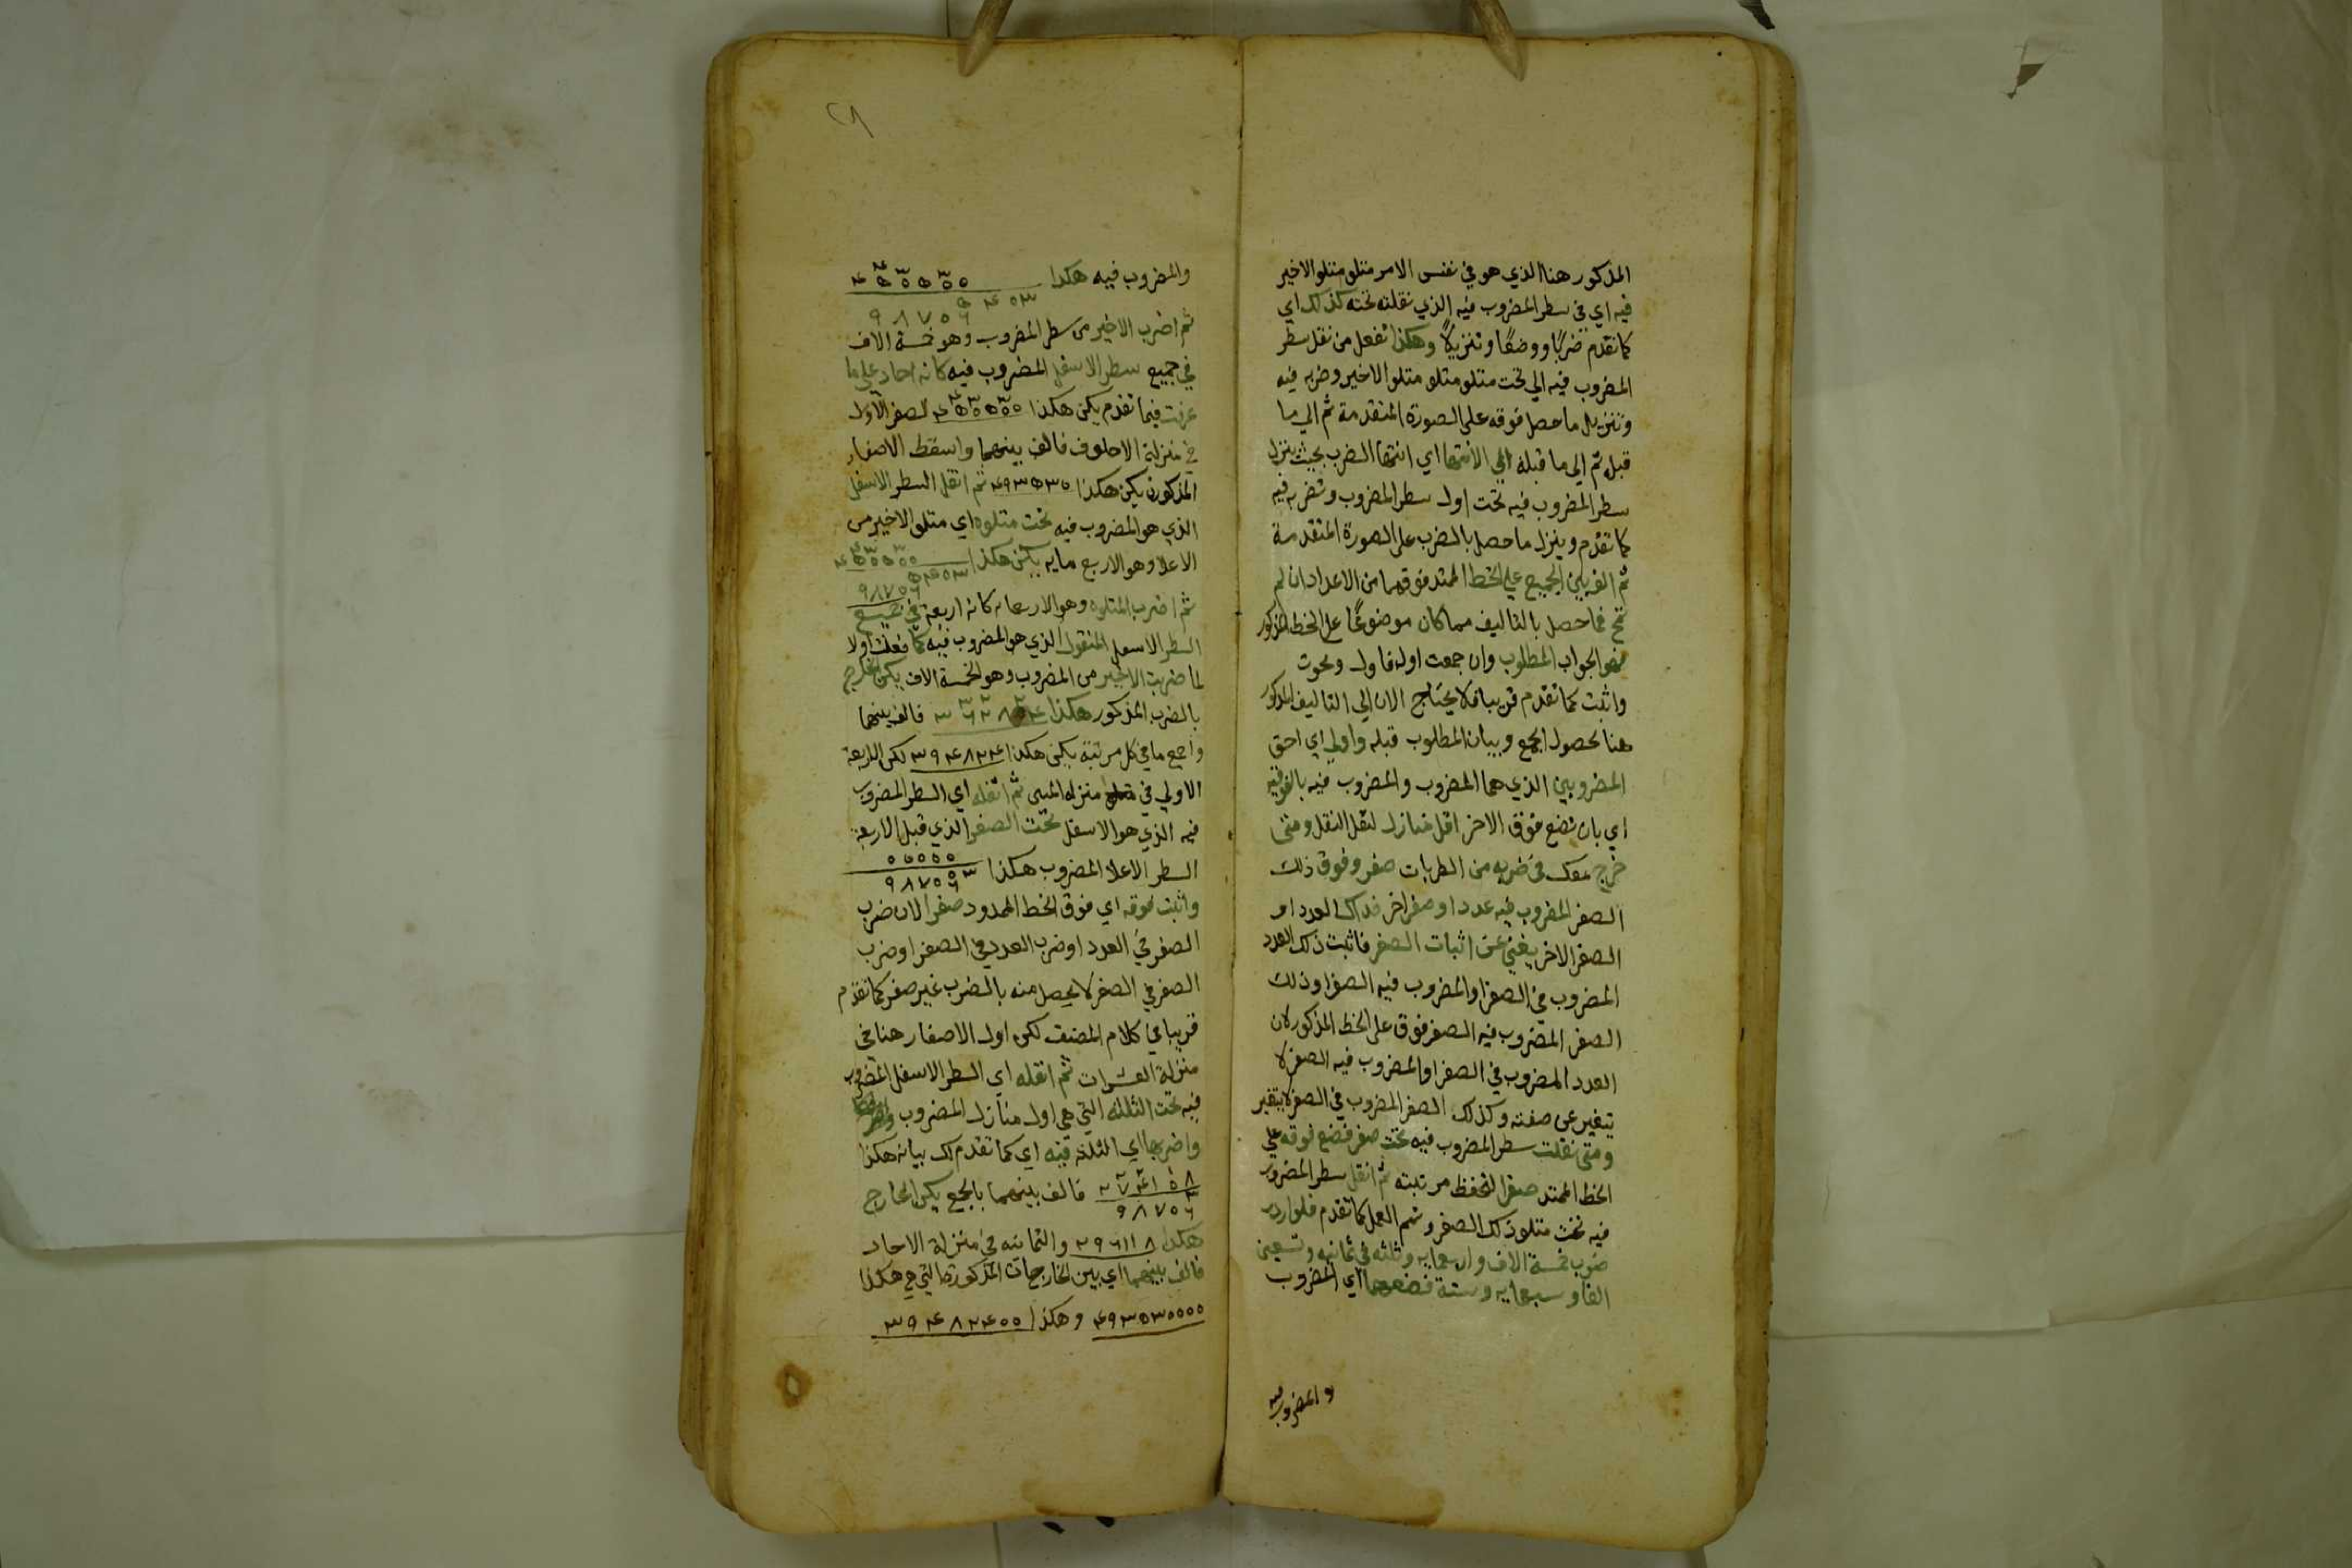 المذكور هنا الذي هو في نفس الامر متلو متلو الاخير
فيه اي في سطر المضروب فيه الذي نقلته تحته كذلك اي
كما تقدم ضربًا ووضعًا وتنزيلًا وهكذا تفعل من نقل سطر
المضروب فيه الي تحت متلو متلو متلو الاخير وضربه فيه
وتنزيل ما حصل فوقه على الصورة المتقدمة ثم الي ما
قبله ثم الى ما قبله الي الانتها اي انتها الضرب بحيث ينزل
سطر المضروب فيه تحت اول سطر المضروب وتضربه فيه
كما تقدم وينزل ما حصل بالضرب على الصورة المتقدمة
ثم الف بين الجميع علي الخط الممتد فوقهما من الاعداد ان لم
تجمع فما حصل بالتاليف مما كان موضوعًا على الخط المذكور
فهو الجواب المطلوب وان جمعت اولا فاول ومحوت
واثبت كما تقدم قريبا فلا يحتاج الان الي التاليف المذكور
هنا لحصول الجمع وبيان المطلوب قبله واولي اي احق
المضروبين الذي هما المضروب والمضروب فيه بالفوقية
اي بان تضع فوق الاخر اقل منازل لتقل النقل ومتى
خرج معك في ضربه من الضربات صفر وفوق ذلك
الصفر المضروب فيه عدد او صفر اخر فذاك العدد او
الصفر الاخر يغني عن اثبات الصفر فاثبت ذلك العدد
المضروب في الصفر او المضروب فيه الصفر او ذلك
الصفر المضروب فيه الصفر فوق على الخط المذكور لان
العدد المضروب في الصفر او المضروب فيه الصفر لا
يتغير عن صفته وكذلك الصفر المضروب في الصفر لا يتغير
ومتى نقلت سطر المضروب فيه تحت صفر فضع فوقه علي
الخط الممتد صفرا لتحفظ مرتبته ثم انقل سطر المضروب
فيه تحت متلو ذلك الصفر وتمم العمل كما تقدم فلو اردت
ضرب خمسة الاف واربعمايه وثلثه في ثمانيه وتسعين
الفا وسبعمايه وستة فضعهما اي المضروب
والمضروب فيه
٢٨
والمضروب فيه هكذا
٥٤٠٣
٩٨٧٠٦
ثم اضرب الاخير من سطر المضروب وهو خمسة الاف
في جميع سطر الاسفل المضروب فيه كانه احاد علي ما
عرفت فيما تقدم يكن هكذا الصفر الاول
في منزلة الاحلوف فالف بينهما واسقط الاصفار
المذكورة يكن هكذا ٤٩٣٥٣٠ ثم انقل السطر الاسفل
الذي هو المضروب فيه تحت متلوه اي متلو الاخير من
الاعلا وهو الاربع مايه يكن هكذا
٥٤٠٣
٩٨٧٠٦
ثم اضرب المتلوه وهو الاربعمايه كانه اربعة في جميع
السطر الاسفل المنقول الذي هو المضروب فيه كما فعلت اولا
لما ضربت الاخير من المضروب وهو الخمسة الاف يكن الخارج
بالضرب المذكور هكذا فالف بينهما
واجمع ما في كل مرتبة يكن هكذا ٣٩٤٨٢٤ لكن الاربعة
الاولي في منزله الميين ثم انقله اي السطر المضروب
فيه الذي هو الاسفل تحت الصفر الذي قبل الاربعة
السطر الاعلا المضروب هكذا
٩٨٧٠٦
واثبت فوقه اي فوق الخط الممدود صفرا لان ضرب
الصفر في العدد او ضرب العدد في الصفر او ضرب
الصفر في الصفر لا يحصل منه بالضرب غير صفر كما تقدم
قريبا في كلام المصنف لكن اول الاصفار هنا في
منزلة العشرات ثم انقله اي السطر الاسفل المضروب
فيه تحت الثلثه التي هي اول منازل المضروب
واضربها اي الثلثه فيه اي كما تقدم لك بيانه هكذا
فالف بينهما بالجمع يكن الخارج
٩٨٧٠٦
هكذا ٢٩٦١١٨ والثمانيه في منزلة الاحاد
فالف بينهما اي بين الخارجات المذكورة التي هي هكذا
٤٩٣٥٣٠٠٠٠ وهكذا ٣٩٤٨٢٤٠٠